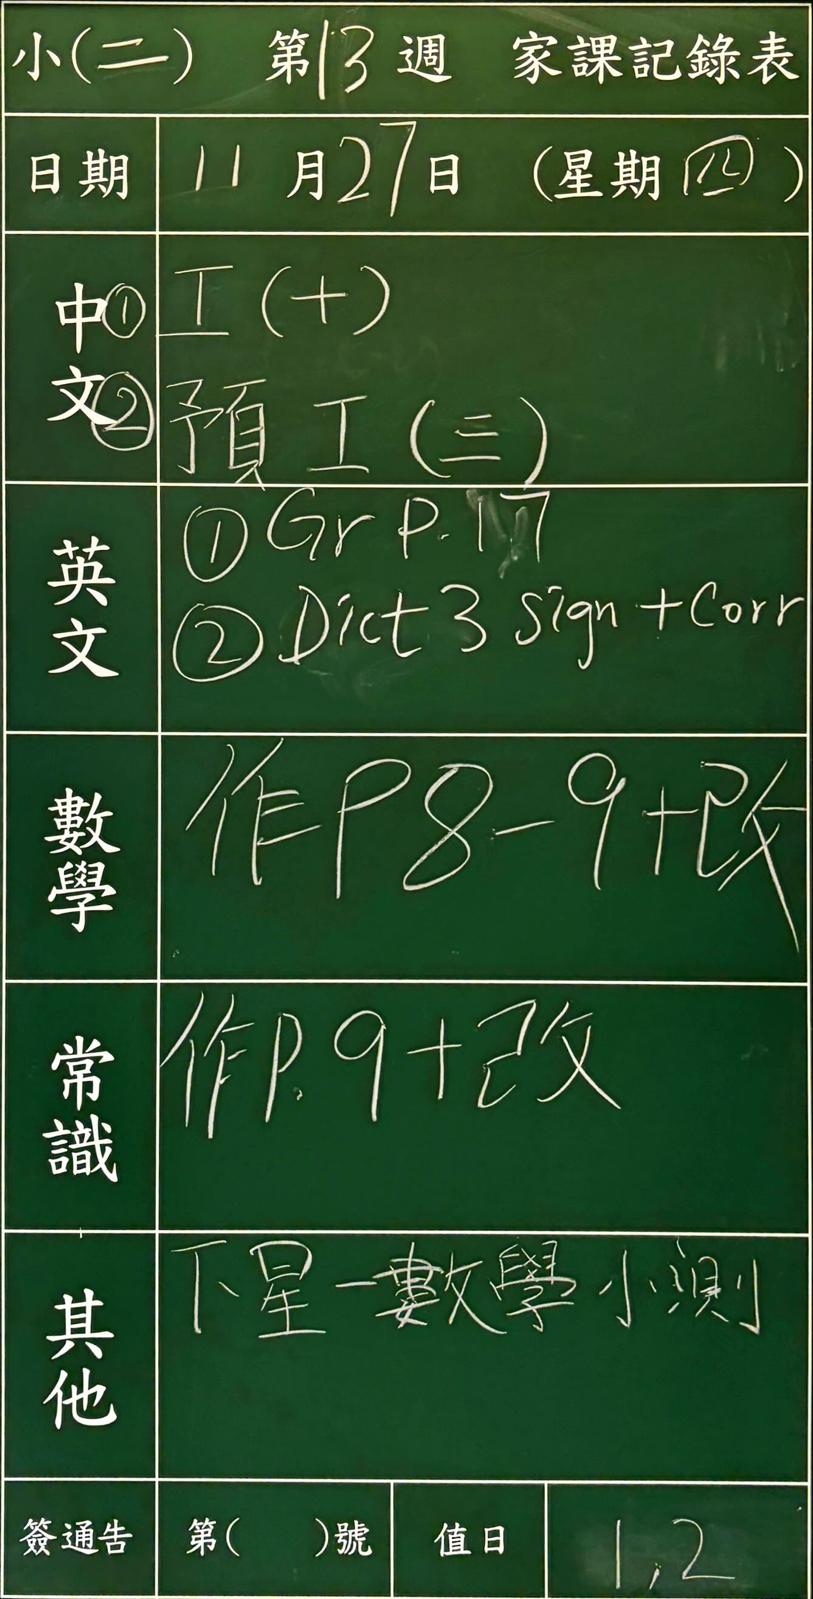 小(二) 第13週 家課記錄表
日期 11月27日 (星期四)
中文 ① 工(十)
② 預工(三)
英文 ① Gr P.17
② Dict 3 sign + Corr
數學 作P8-9+改
常識 作P.9+改
其他 下星一數學小測
簽通告 第( )號 值日 1,2